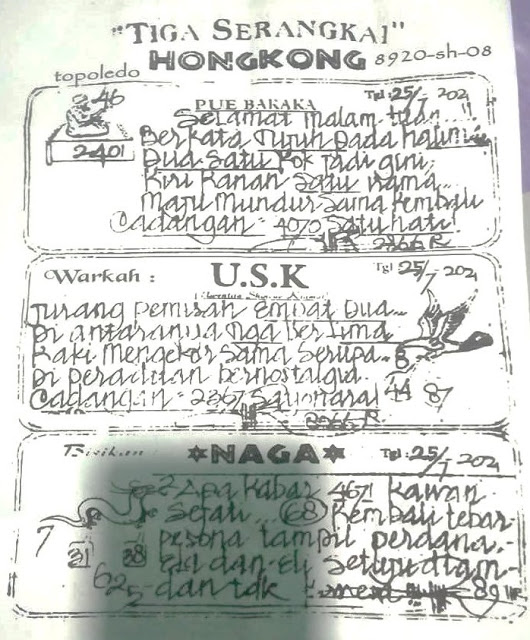 "TIGA SERANGKAI"
HONGKONG 8920-sh-08
topoledo
46
2401
PUE BAKAKA
Tgl: 25/7 202
Selamat malam tuan...
Berkata Tujuh pada
Dua Satu kok jadi gini
Kiri Kanan Satu irama...
Maju Mundur Sama Kembali
Cadangan = 4070 Satu hati
2866 R
Warkah : U.S.K
Tgl 25/7 202
Jurang pemisah Empat Dua...
Di antaranya Tiga ber Lima
Kaki Mengekor Sama Serupa..
8
Di peraduan bernostalgia
44 87
Cadangan = 2867 Sayonara
8866 R
Bisikan NAGA
Tgl: 25/7 202
2 Apa Kabar 4671 Kawan
Sejati... 68 Kembali tebar
7
pesona tampil perdana..
31 38
dan Eli Setuju diam
625 dan tak
89